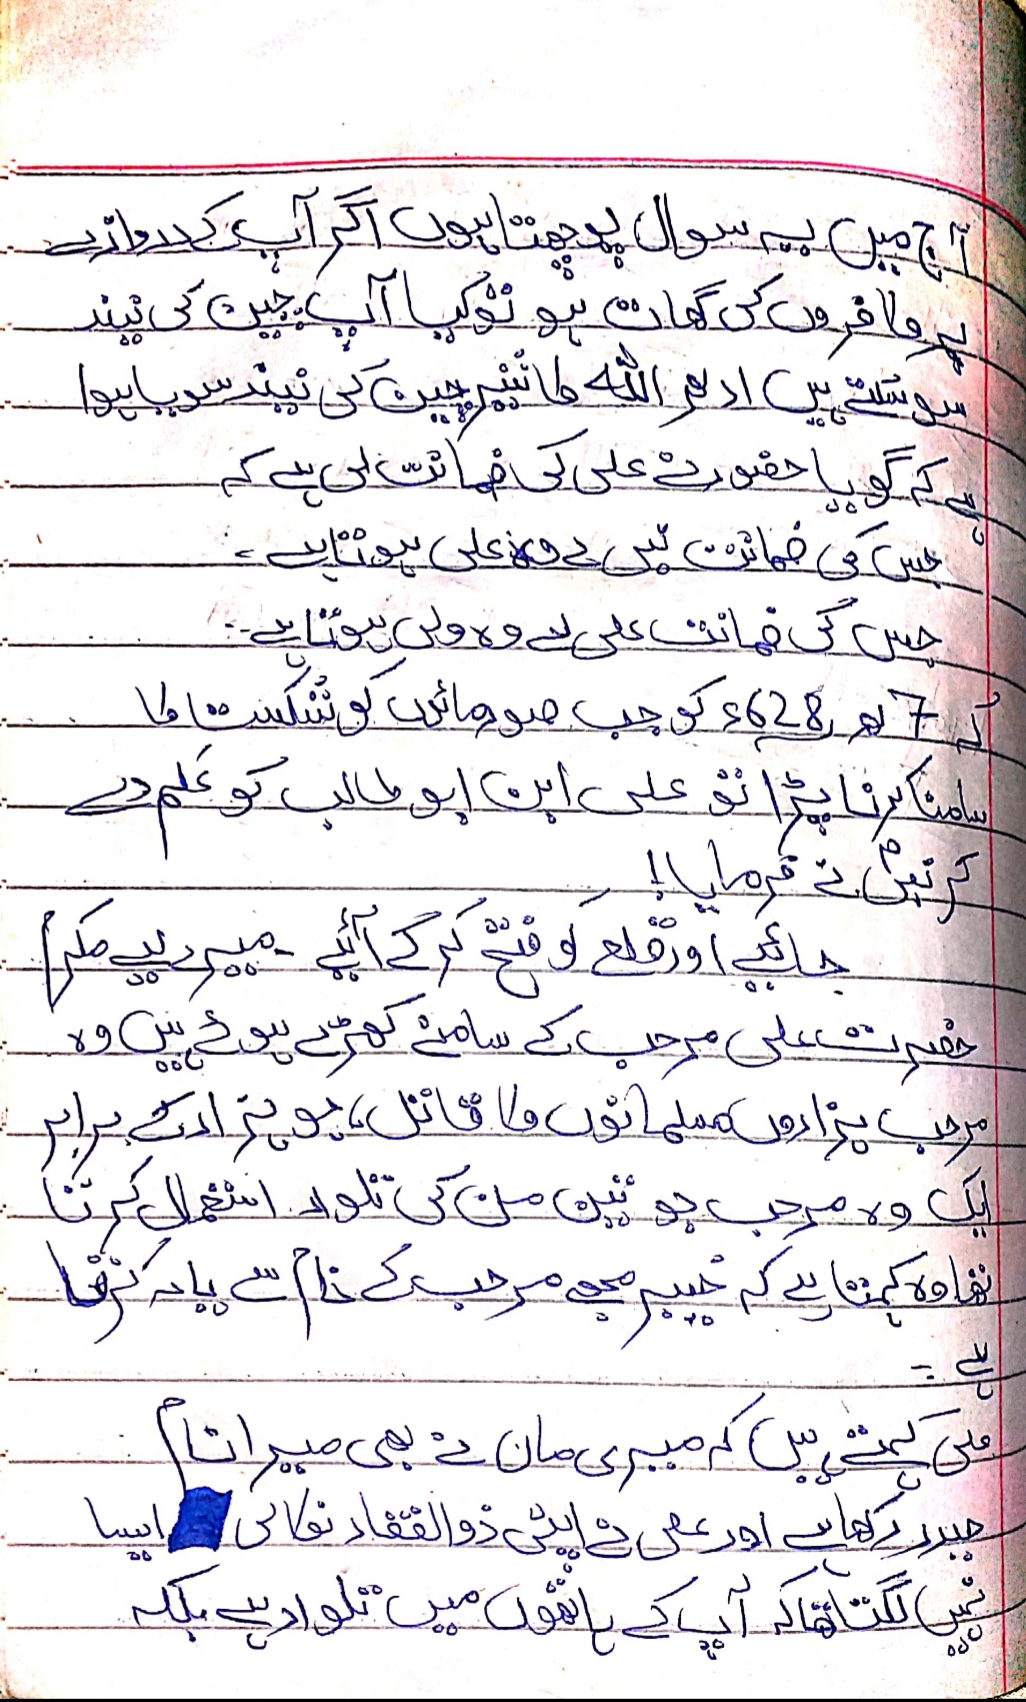 آج میں یہ سوال پوچھتا ہوں اگر آپ کے دروازے
پر کافروں کی گھات ہو تو کیا آپ چین کی نیند
سو سکتے ہیں ادھر اللہ کا شیر چین کی نیند سویا ہوا
ہے کہ گویا حضور نے علی کی ضمانت لی ہے کہ
جس کی ضمانت نبی لے وہ علی ہوتا ہے۔
جس کی ضمانت علی لے وہ ولی ہوتا ہے۔
کہ 7ھ 628ء کو جب صورمائوں کو شکست کا
سامنا کرنا پڑا تو علی ابن ابو طالب کو علم دے
کر نبیؐ نے فرمایا!
جائیے اور قلعے کو فتح کر کے آئیے۔ میرے لیے مکرم
حضرت علی مرحب کے سامنے کھڑے ہوئے ہیں وہ
مرحب ہزاروں مسلمانوں کا قاتل، جو ہزار کے برابر
ایک وہ مرحب جو تین من کی تلوار استعمال کرتا
تھا وہ کہتا ہے کہ خیبر مجھے مرحب کے نام سے یاد کرتا
ہے۔
علی کہتے ہیں کہ میری مان نے بھی میرا نام
حیدر رکھا ہے اور علی نے اپنی ذوالفقار نکالی ایسا
نہیں لگتا تھا کہ آپ کے ہاتھوں میں تلوار ہے بلکہ